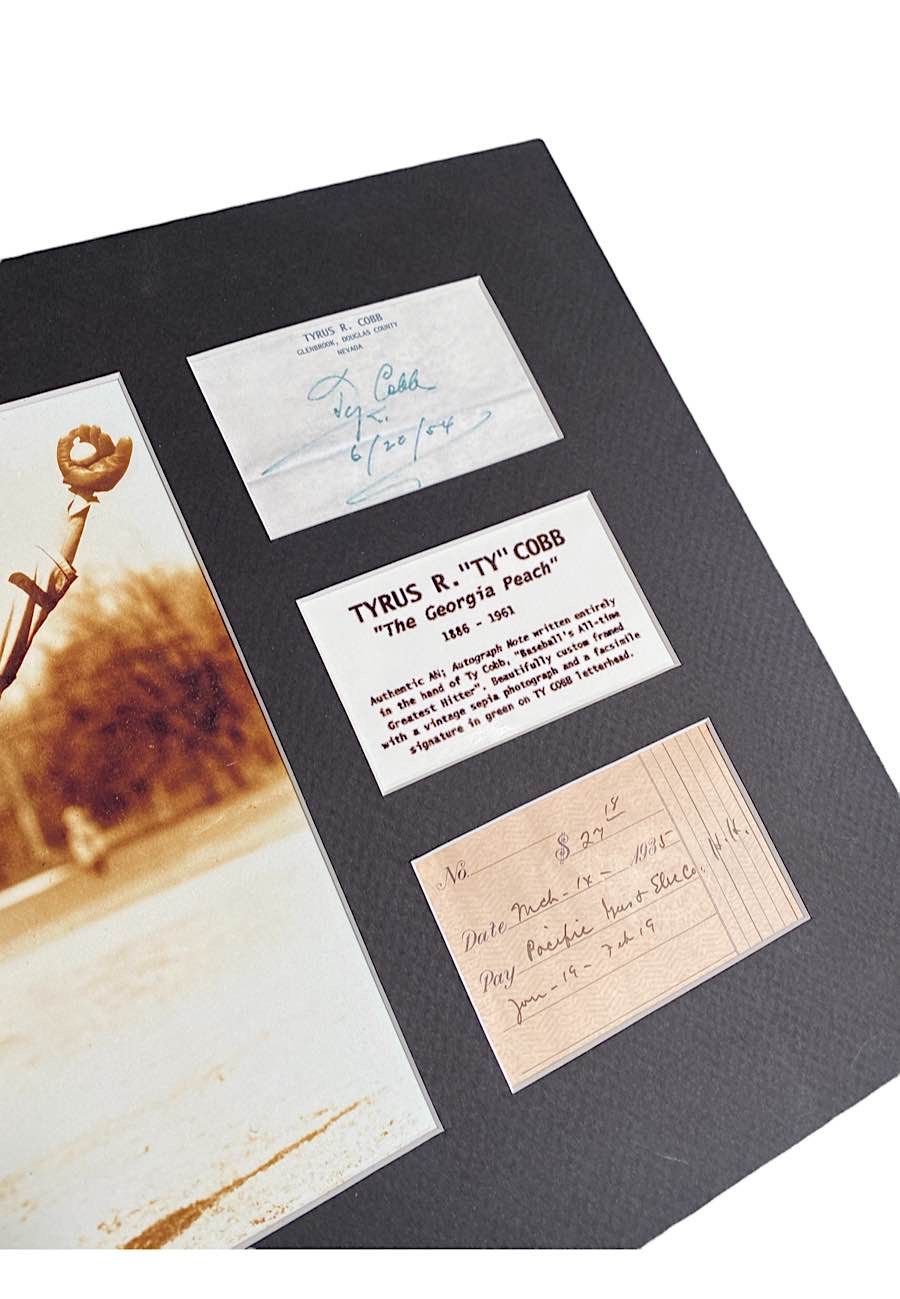 TYRUS R. COBB
GLENBROOK, DOUGLAS COUNTY
NEVADA
Ty Cobb
6/20/54
TYRUS R. "TY" COBB
"The Georgia Peach"
1886 - 1961
Authentic AN; Autograph Note written entirely
in the hand of Ty Cobb, "Baseball's All-time
Greatest Hitter". Beautifully custom framed
with a vintage sepia photograph and a facsimile
signature in green on TY COBB letterhead.
No. $ 27 19
Date Mch - 1935
Pay Pacific Gas & Elec Co. H.H.
Jan - 19 - Feb 19